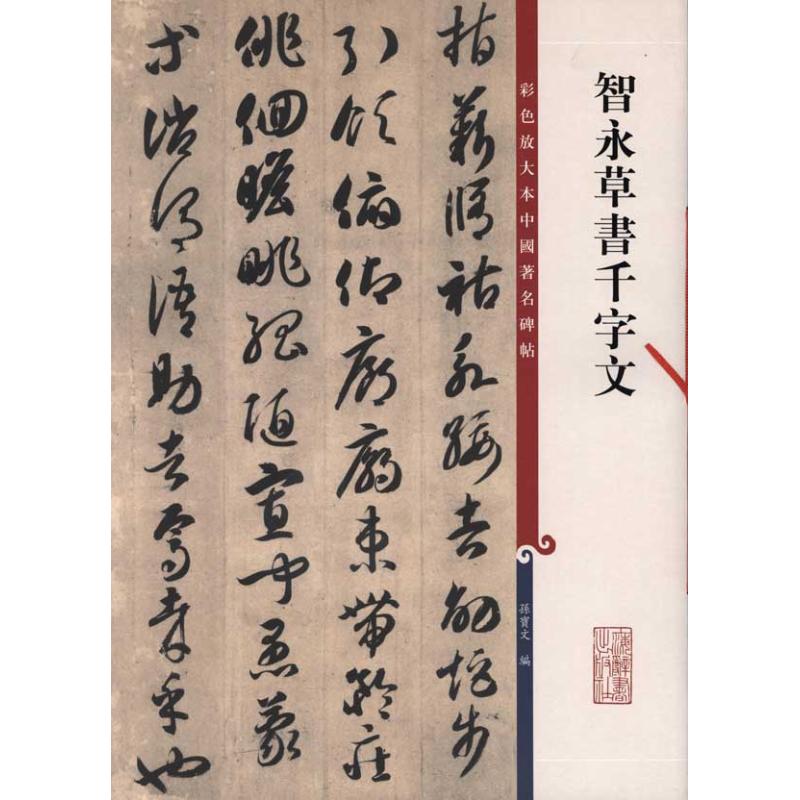 智永草書千字文
上海辭書出版社
彩色放大本中國著名碑帖
孫寶文 編
指薪脩祜永綏吉劭矩步
引領俯仰廊廟束帶矜莊
徘徊瞻眺孤陋寡聞愚蒙
等誚謂語助者焉哉乎也